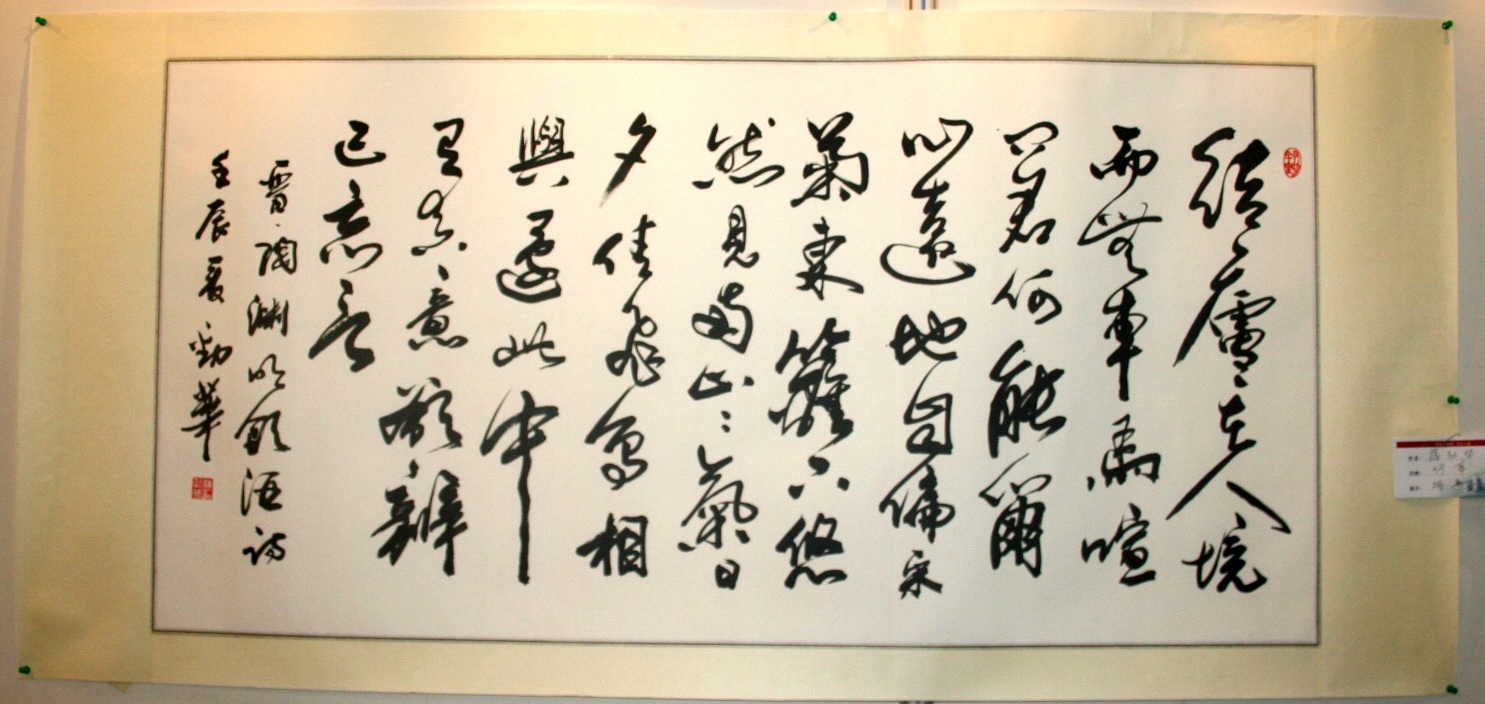 結廬在人境
而無車馬喧
问君何能爾
心遠地自偏采
菊東籬下悠
然見南山々氣日
夕佳飛鳥相
與還此中
有真意欲辨
已忘言
晉陶淵明飲酒詩
壬辰夏勁華